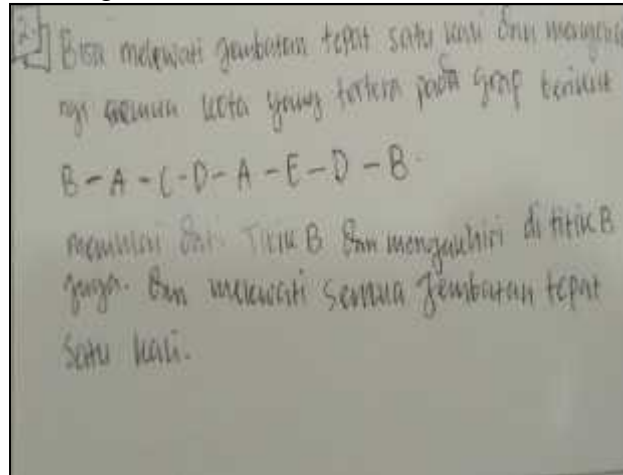 2. Bisa melewati jembatan tepat satu kali dan mengunju
ngi semua kota yang tertera pada grap berikut
B - A - C - D - A - E - D - B.
memulai dari titik B dan mengakhiri di titik B
juga. Dan melewati semua jembatan tepat
satu kali.